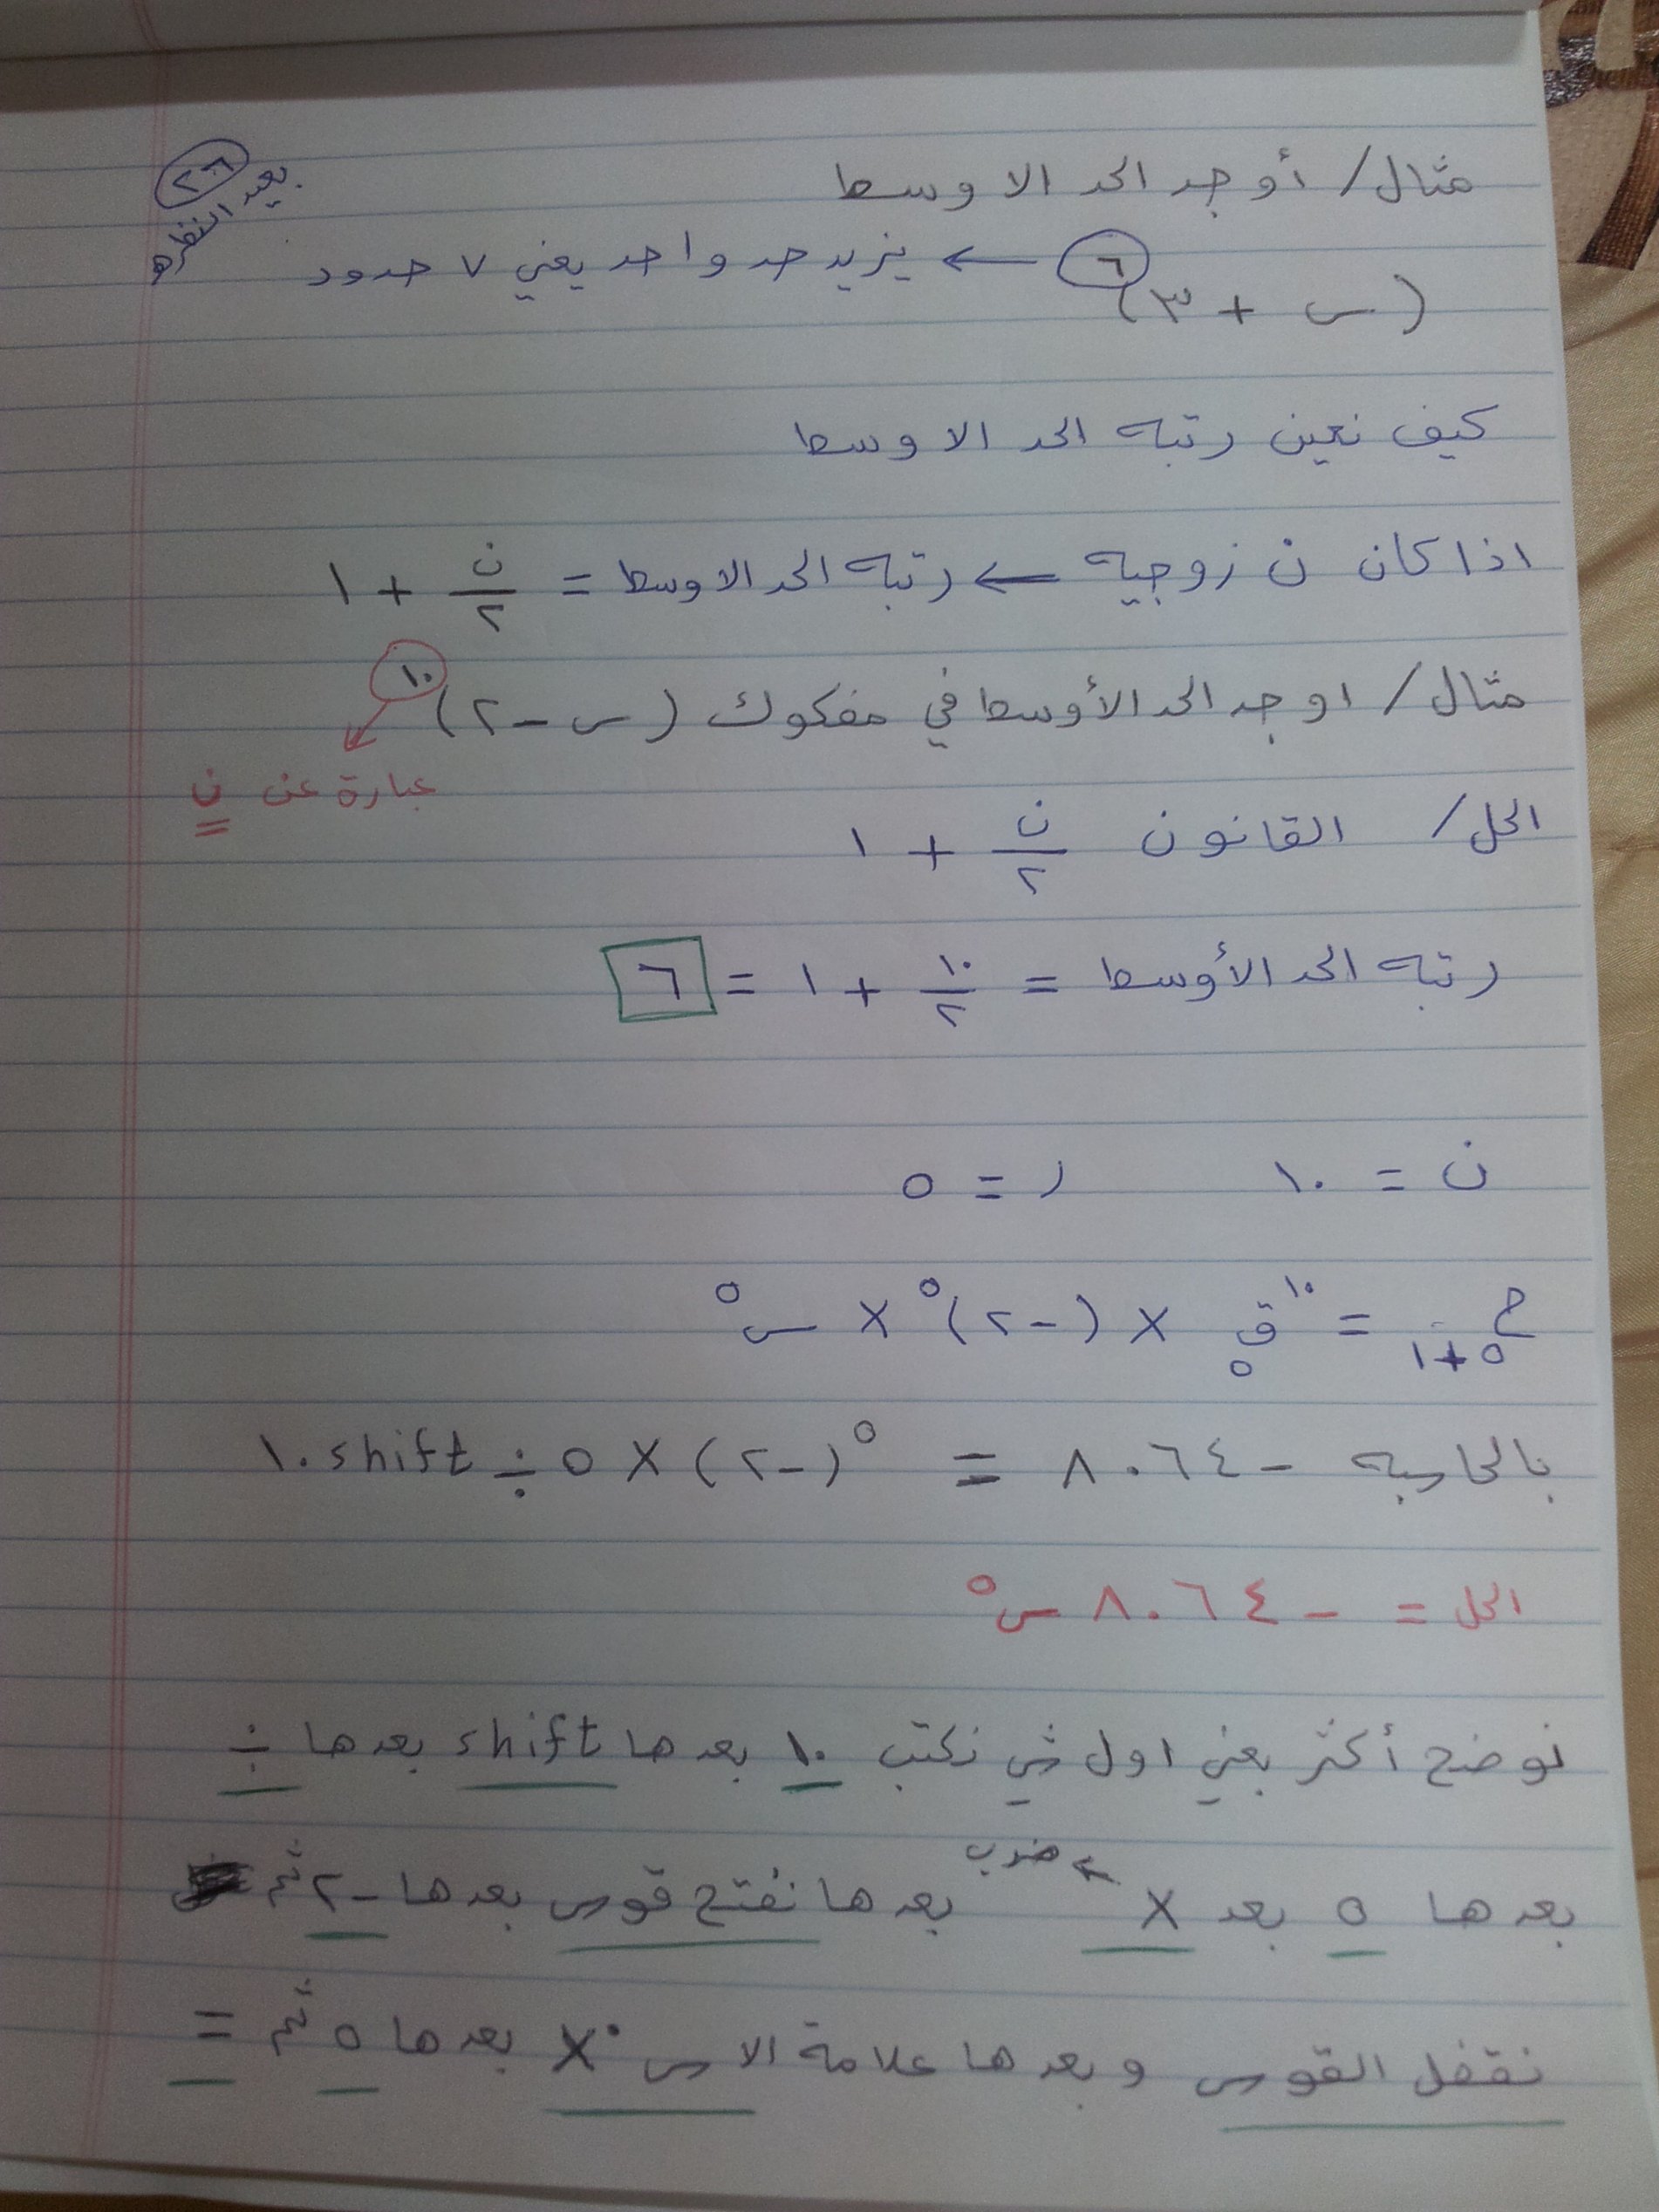 بعيد النظره ٢٦
مثال/ أوجد الحد الاوسط
(س + ٣)٦ ← يزيد حد واحد يعني ٧ حدود
كيف نعين رتبه الحد الاوسط
اذا كان ن زوجيه ← رتبه الحد الاوسط = ن/٢ + ١
مثال/ اوجد الحد الأوسط في مفكوك (س - ٢)١٠
عبارة عن ن
الحل/ القانون ن/٢ + ١
رتبه الحد الأوسط = ١٠/٢ + ١ = ٦
ن = ١٠ ر = ٥
ح٥+١ = ١٠ق٥ × (-٢)٥ × س٥
بالحاسبه - ٨٠٦٤ = ١٠ shift ÷ ٥ × (-٢)٥
الحل = - ٨٠٦٤ س٥
نوضح أكثر يعني اول شي نكتب ١٠ بعدها shift بعدها ÷
بعدها ٥ بعد × ← ضرب بعدها نفتح قوس بعدها -٢ ثم
نقفل القوس وبعدها علامة الاس x٠ بعدها ٥ ثم =